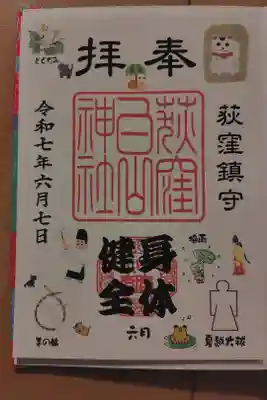 奉拝
荻窪鎮守
荻窪
白山
神社
身体
健全
六月
令和七年六月七日
夏越大祓
茅の輪